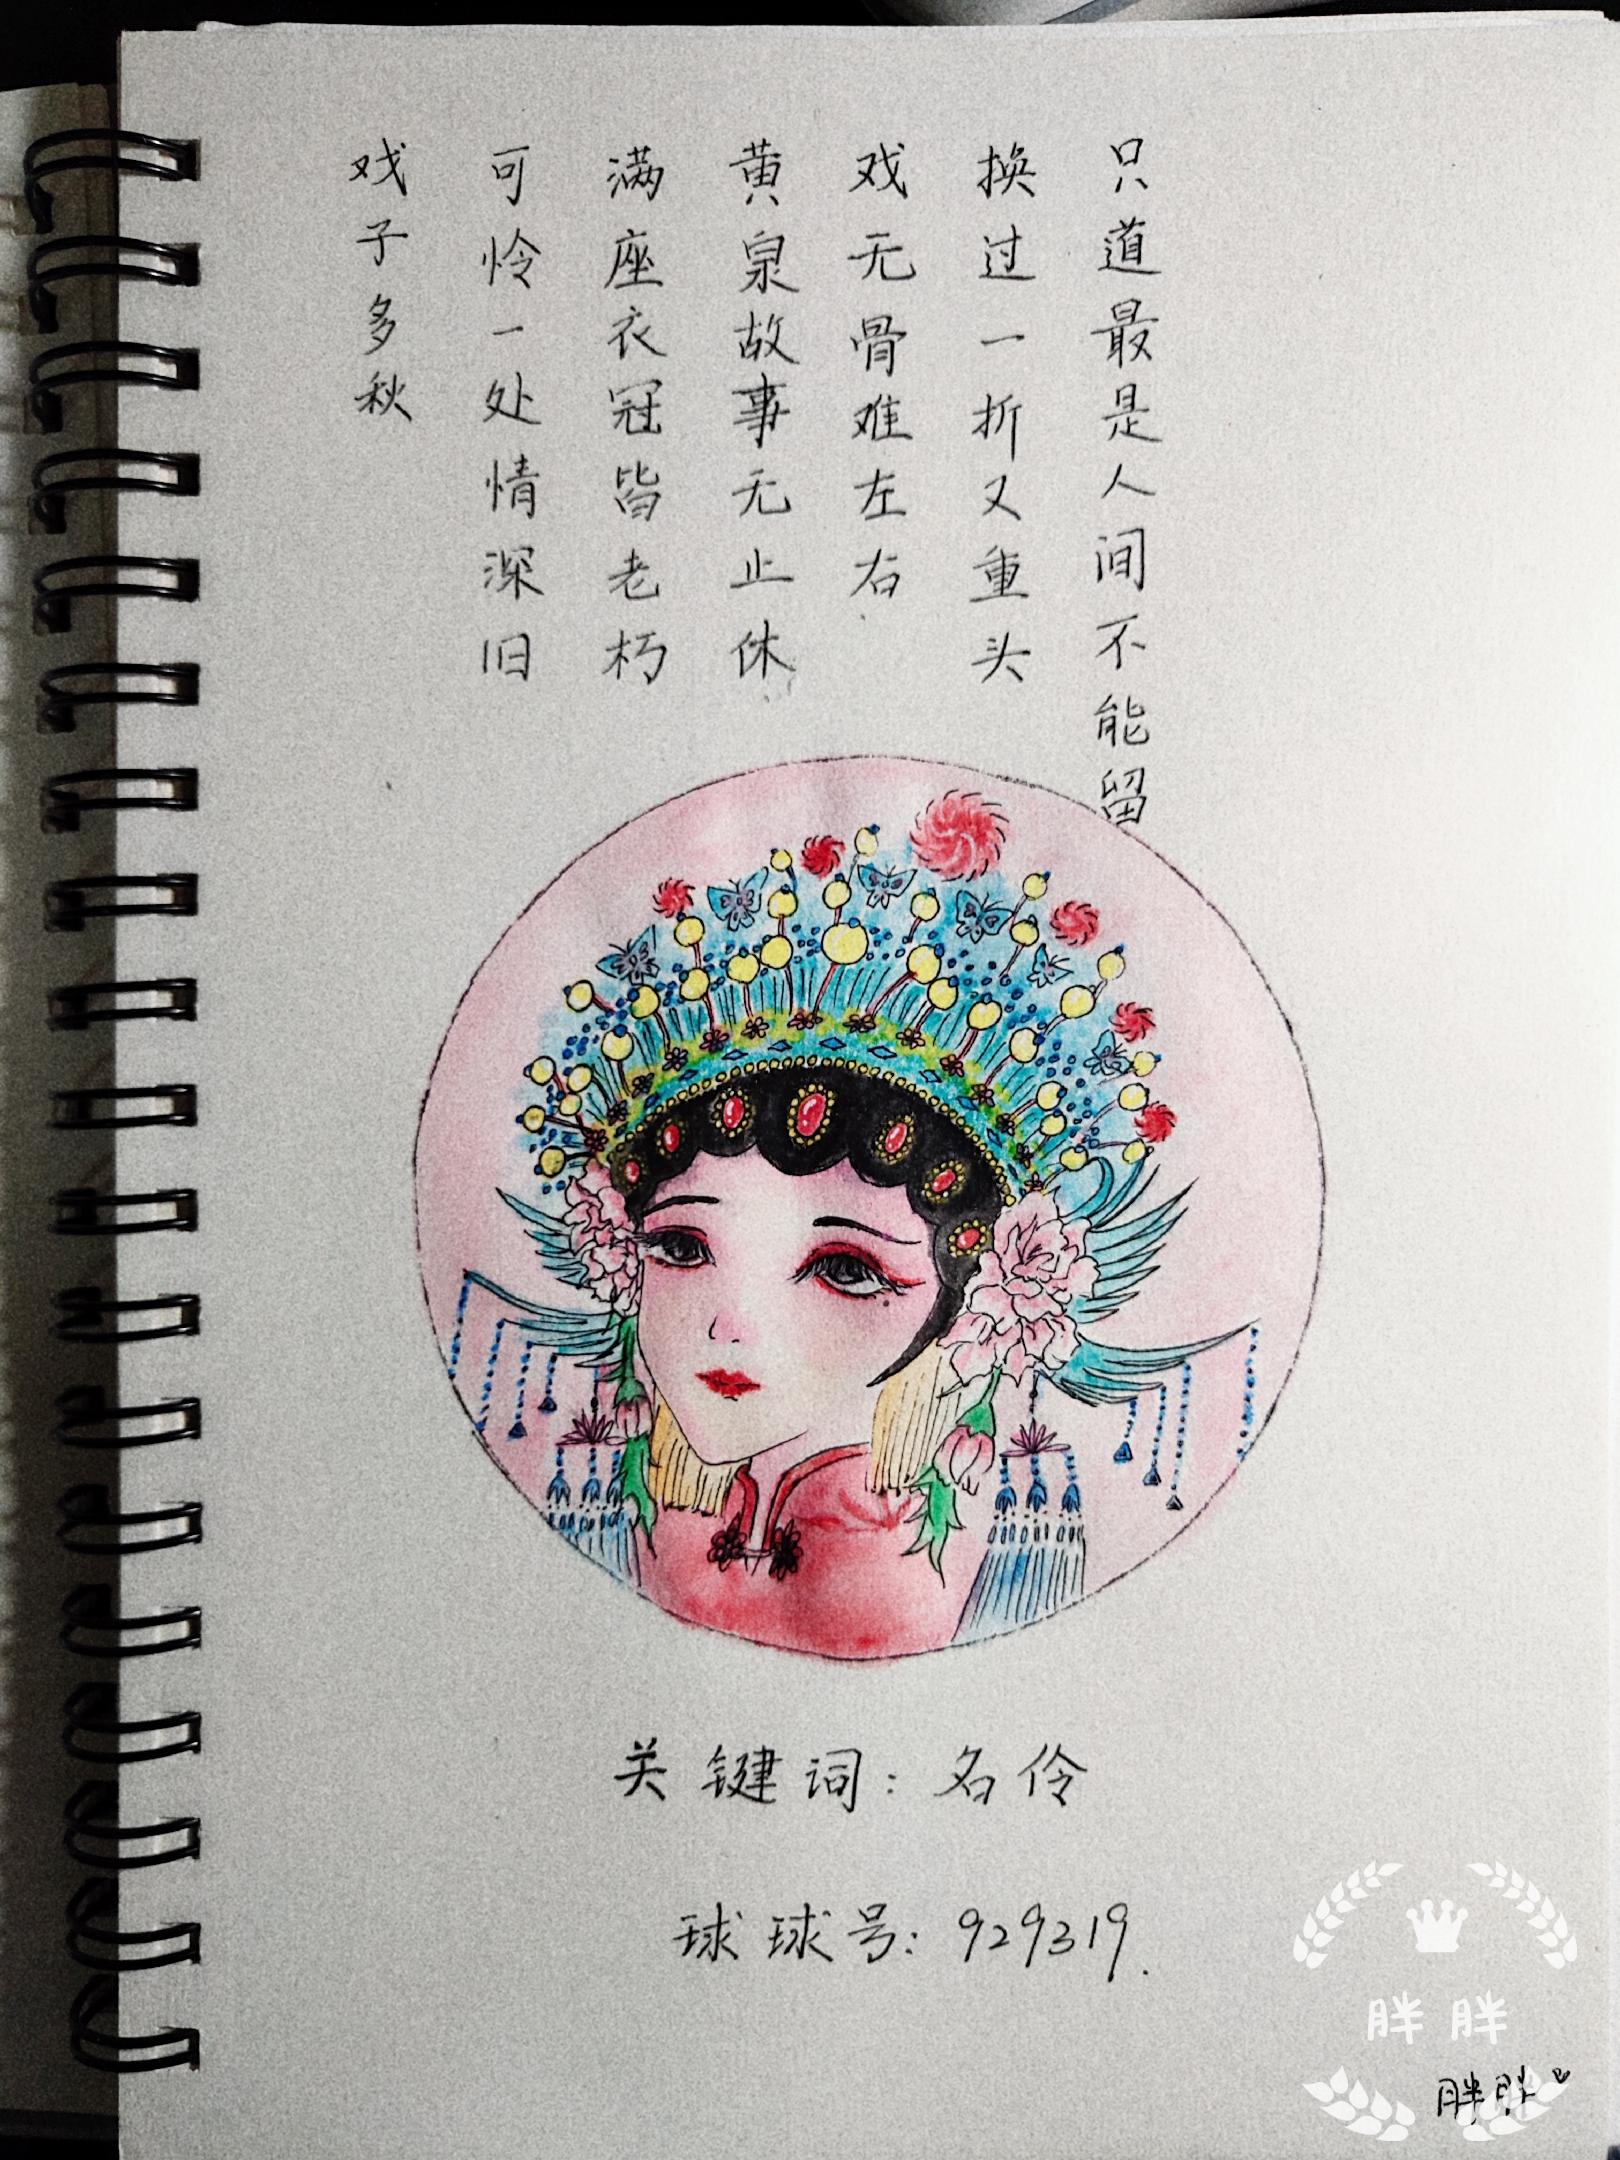 只道最是人间不能留
换过一折又重头
戏无骨难左右
黄泉故事无止休
满座衣冠皆老朽
可怜一处情深旧
戏子多秋
关键词：名伶
球球号：929319.
胖胖
胖胖